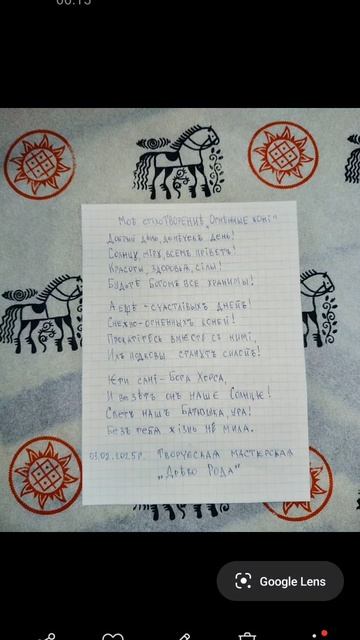 06:15
Моѣ стіхотворенїѣ „Огненные конї"
Добрый день, донечекъ день!
Солнцу, міру, всемъ прївѣтъ!
Красоты, здоровья, сїлы!
Будьте Богомъ все хранимы!
А ещё - счастлівыхъ днеѣ!
Снежно-огненныхъ конеѣ!
Прокатітесь вместе съ німї,
Ихъ подковы станутъ сілоѣ!
Эті сані - Бога Хорса,
И везётъ онъ наше Солнце!
Светъ нашъ Батюшка, ура!
Безъ тебя жізнь не мила.
03.02.2025г. Творческая мастерская
„Древо Рода"
Google Lens